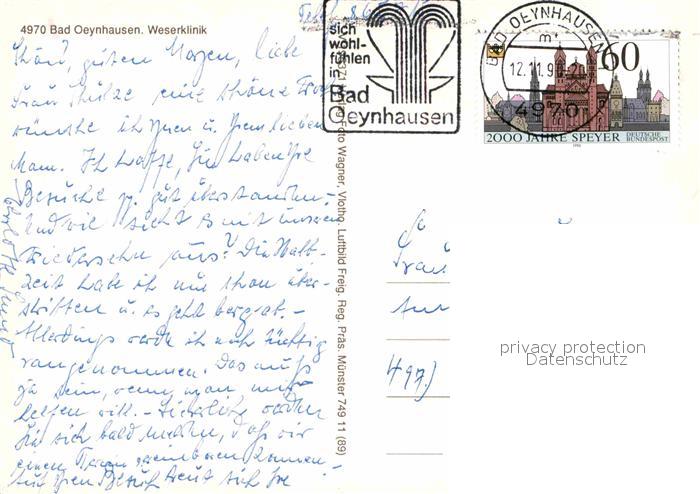 4970 Bad Oeynhausen. Weserklinik
guten Morgen, liebe
Frau eine schöne
wünsche ich Ihnen u. Ihrem lieben
Mann. Ich hoffe, Sie haben Ihre
Besuche gut überstanden.
Und wie sieht es mit unserem
Wiedersehn aus? Die Halb-
zeit habe ich nun schon über-
schritten u. es geht bergab. -
Allerdings werde ich noch kräftig
rangenommen. Das muß
ja sein, wenn man mir
helfen will. - Sicherlich werden
Sie sich bald melden, daß wir
einen Termin vereinbaren können. -
Auf Ihren Besuch freut sich Ihre
sich
wohl-
fühlen
in
Bad
Oeynhausen
BAD OEYNHAUSEN
12.11.90
4970
60
2000 JAHRE SPEYER
DEUTSCHE
BUNDESPOST
1990
Foto Wagner, Vlotho, Luftbild Freig. Reg. Präs. Münster 749 11 (89)
Frau
497
privacy protection
Datenschutz